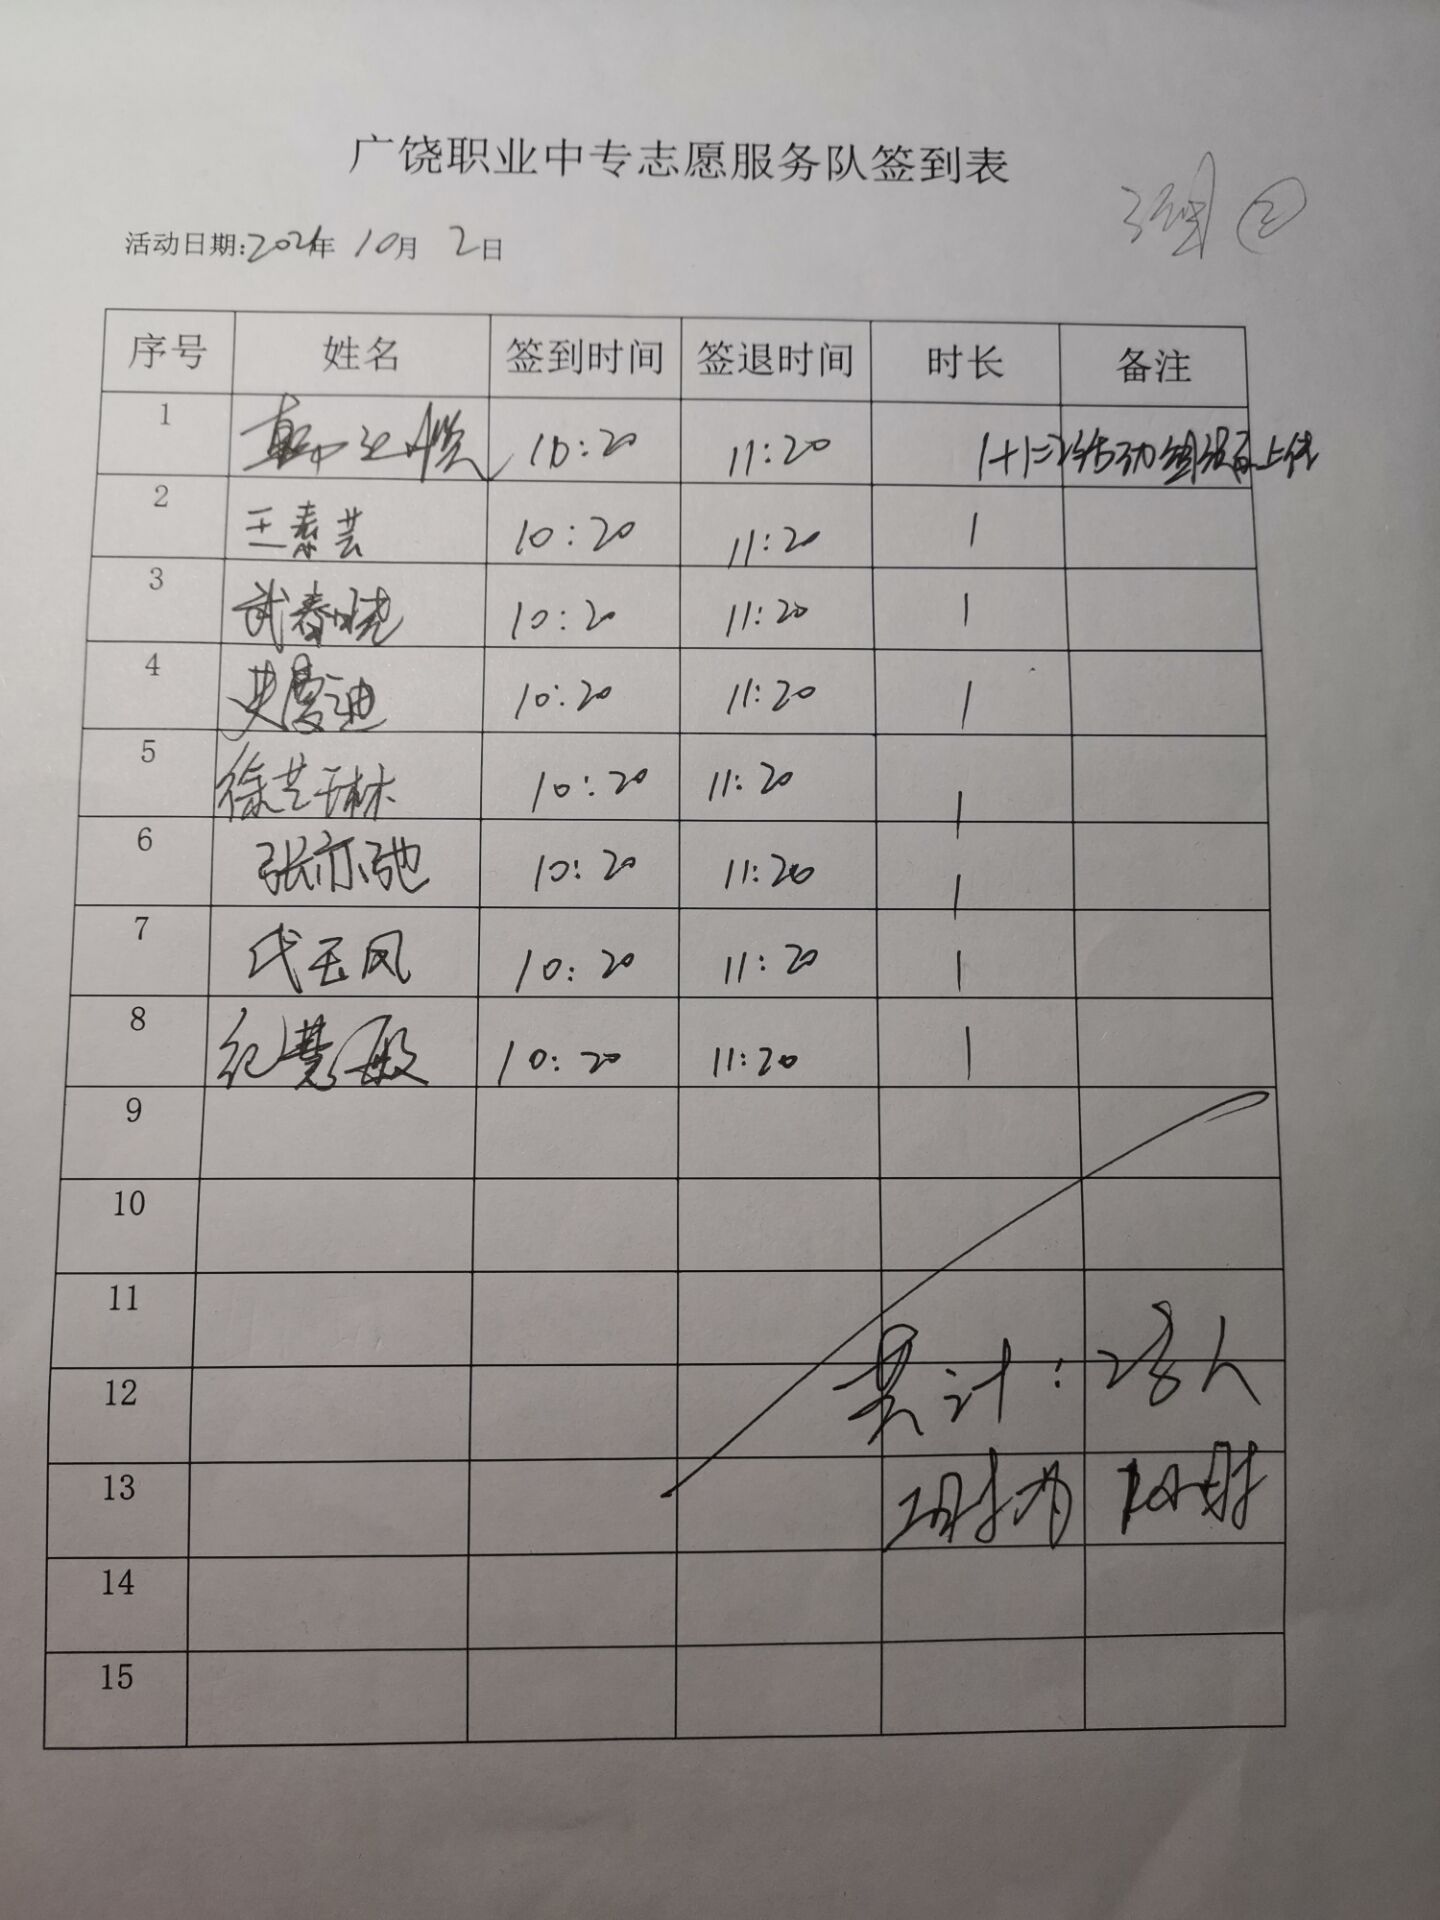 广饶职业中专志愿服务队签到表
②
活动日期:2021年 10月 2日
序号 姓名 签到时间 签退时间 时长 备注
1 10:20 11:20 1+1=2 活动 上传
2 王素芸 10:20 11:20 1
3 武春晓 10:20 11:20 1
4 10:20 11:20 1
5 徐艺琳 10:20 11:20 1
6 张亦弛 10:20 11:20 1
7 代玉凤 10:20 11:20 1
8 纪慧敏 10:20 11:20 1
9
10
11
12 累计:28人
13
14
15